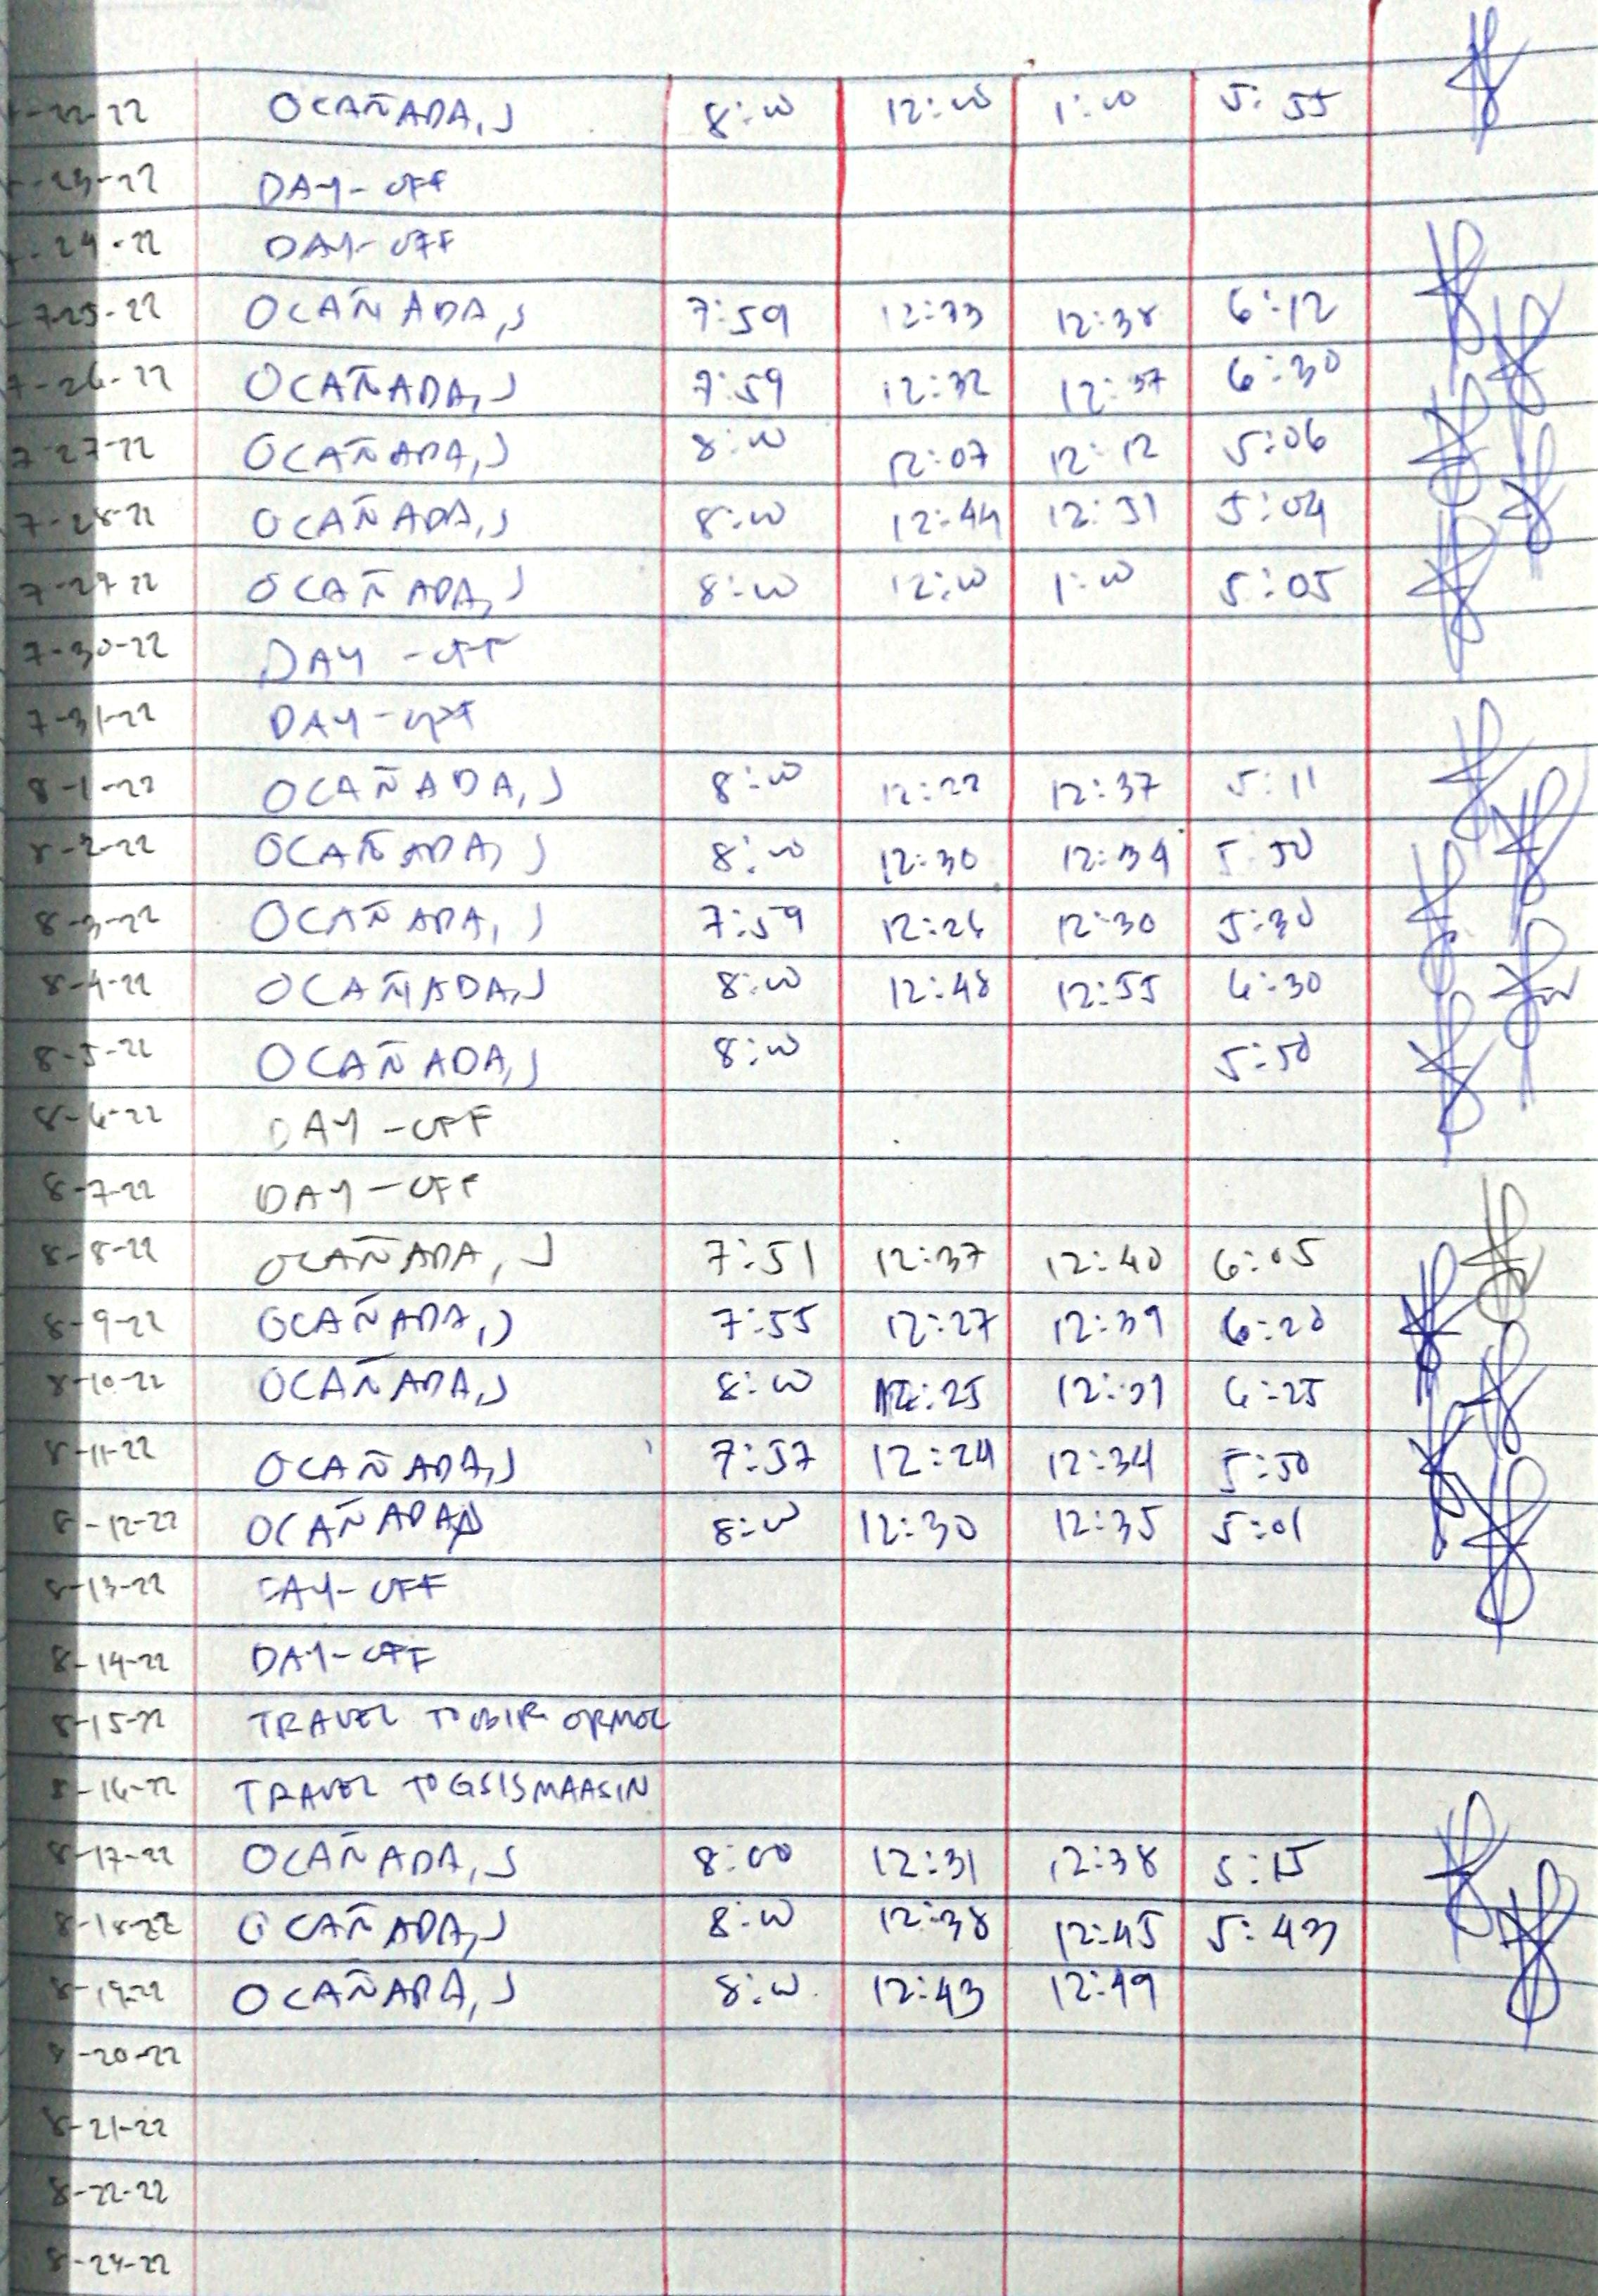 -22-22 OCAÑADA, J 8:00 12:00 1:00 5:55
-23-22 DAY-OFF
-24-22 DAY-OFF
7-25-22 OCAÑADA, J 7:59 12:33 12:38 6:12
7-26-22 OCAÑADA, J 7:59 12:32 12:37 6:30
7-27-22 OCAÑADA, J 8:00 12:07 12:12 5:06
7-28-22 OCAÑADA, J 8:00 12:44 12:51 5:04
7-29-22 OCAÑADA, J 8:00 12:00 1:00 5:05
7-30-22 DAY-OFF
7-31-22 DAY-OFF
8-1-22 OCAÑADA, J 8:00 12:22 12:37 5:11
8-2-22 OCAÑADA, J 8:00 12:30 12:34 5:50
8-3-22 OCAÑADA, J 7:59 12:26 12:30 5:30
8-4-22 OCAÑADA, J 8:00 12:48 12:55 6:30
8-5-22 OCAÑADA, J 8:00 5:50
8-6-22 DAY-OFF
8-7-22 DAY-OFF
8-8-22 OCAÑADA, J 7:51 12:37 12:40 6:05
8-9-22 OCAÑADA, J 7:55 12:27 12:39 6:20
8-10-22 OCAÑADA, J 8:00 12:25 12:31 6:25
8-11-22 OCAÑADA, J 7:57 12:24 12:34 5:50
8-12-22 OCAÑADA, J 8:00 12:30 12:35 5:01
8-13-22 DAY-OFF
8-14-22 DAY-OFF
8-15-22 TRAVEL TO BIR ORMOC
8-16-22 TRAVEL TO GSIS MAASIN
8-17-22 OCAÑADA, J 8:00 12:31 12:38 5:15
8-18-22 OCAÑADA, J 8:00 12:38 12:45 5:43
8-19-22 OCAÑADA, J 8:00 12:43 12:49
8-20-22
8-21-22
8-22-22
8-24-22